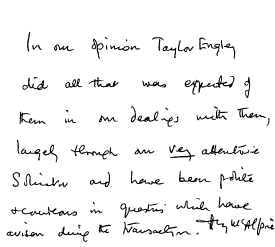 In our opinion Taylor Engley
did all that was expected of
them in our dealings with them,
largely through an very attentive
Solicitor and have been polite
in questions which have
arisen during the transaction.